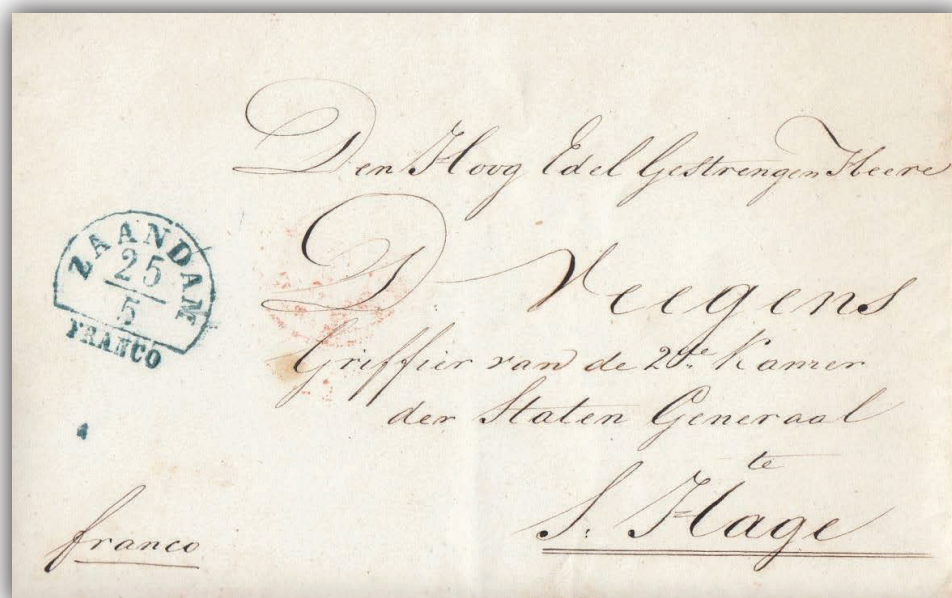 Den Hoog Edel Gestrengen Heere
D Veegens
Griffier van de 2de. Kamer
der Staten Generaal
te
S. Hage
franco
ZAANDAM
25
5
FRANCO